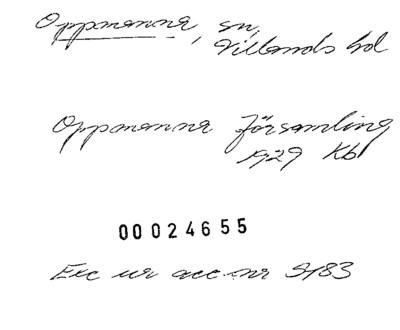 Oppmanna, sn,
Villands hd
Oppmanna församling
1929 Kbl
00024655
Exc ur acc-nr 3183